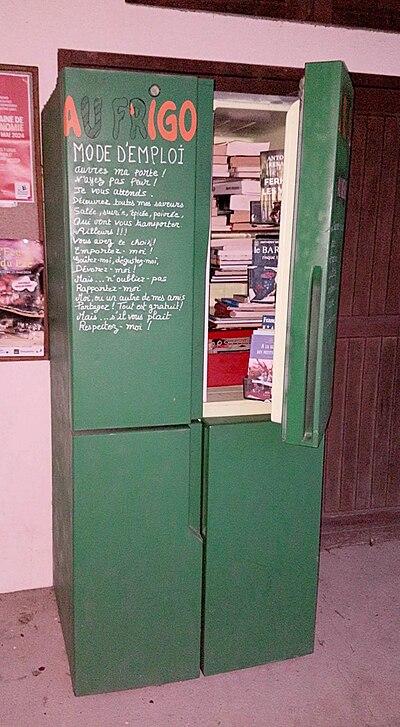 AU FRIGO
MODE D'EMPLOI
Ouvres ma porte !
N'ayez pas peur !
Je vous attends.
Découvrez toutes mes saveurs
Salée, sucrée, épicée, poivrée,
Qui vont vous transporter
Ailleurs !!!
Vous avez le choix !
Emportez-moi !
Goûtez-moi, dégustez-moi,
Dévorez-moi !
Mais...n'oubliez-pas
Rapportez-moi
Moi, ou un autre de mes amis
Partagez ! Tout est gratuit !
Mais...s'il vous plait
Respectez-moi !
MAI 2024